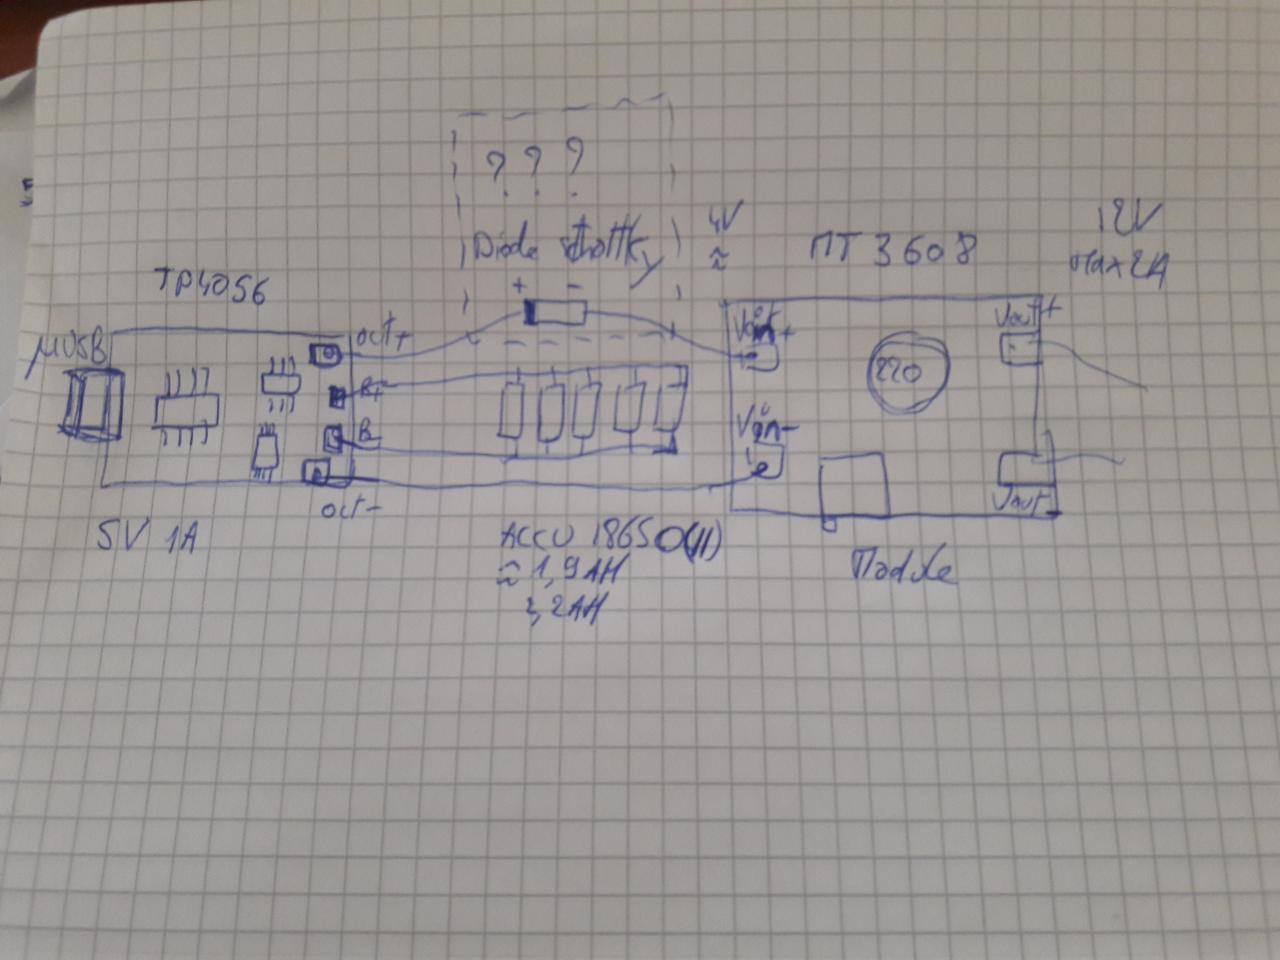 ? ? ?
Diode schottky
+ -
4V
≈
MT3608
12V
max 2A
TP4056
µUSB
out+
B+
B-
out-
Vin+
Vin-
220
Vout+
Vout-
5V 1A
ACCU 18650(//)
≈ 1,9AH
2,2AH
Module